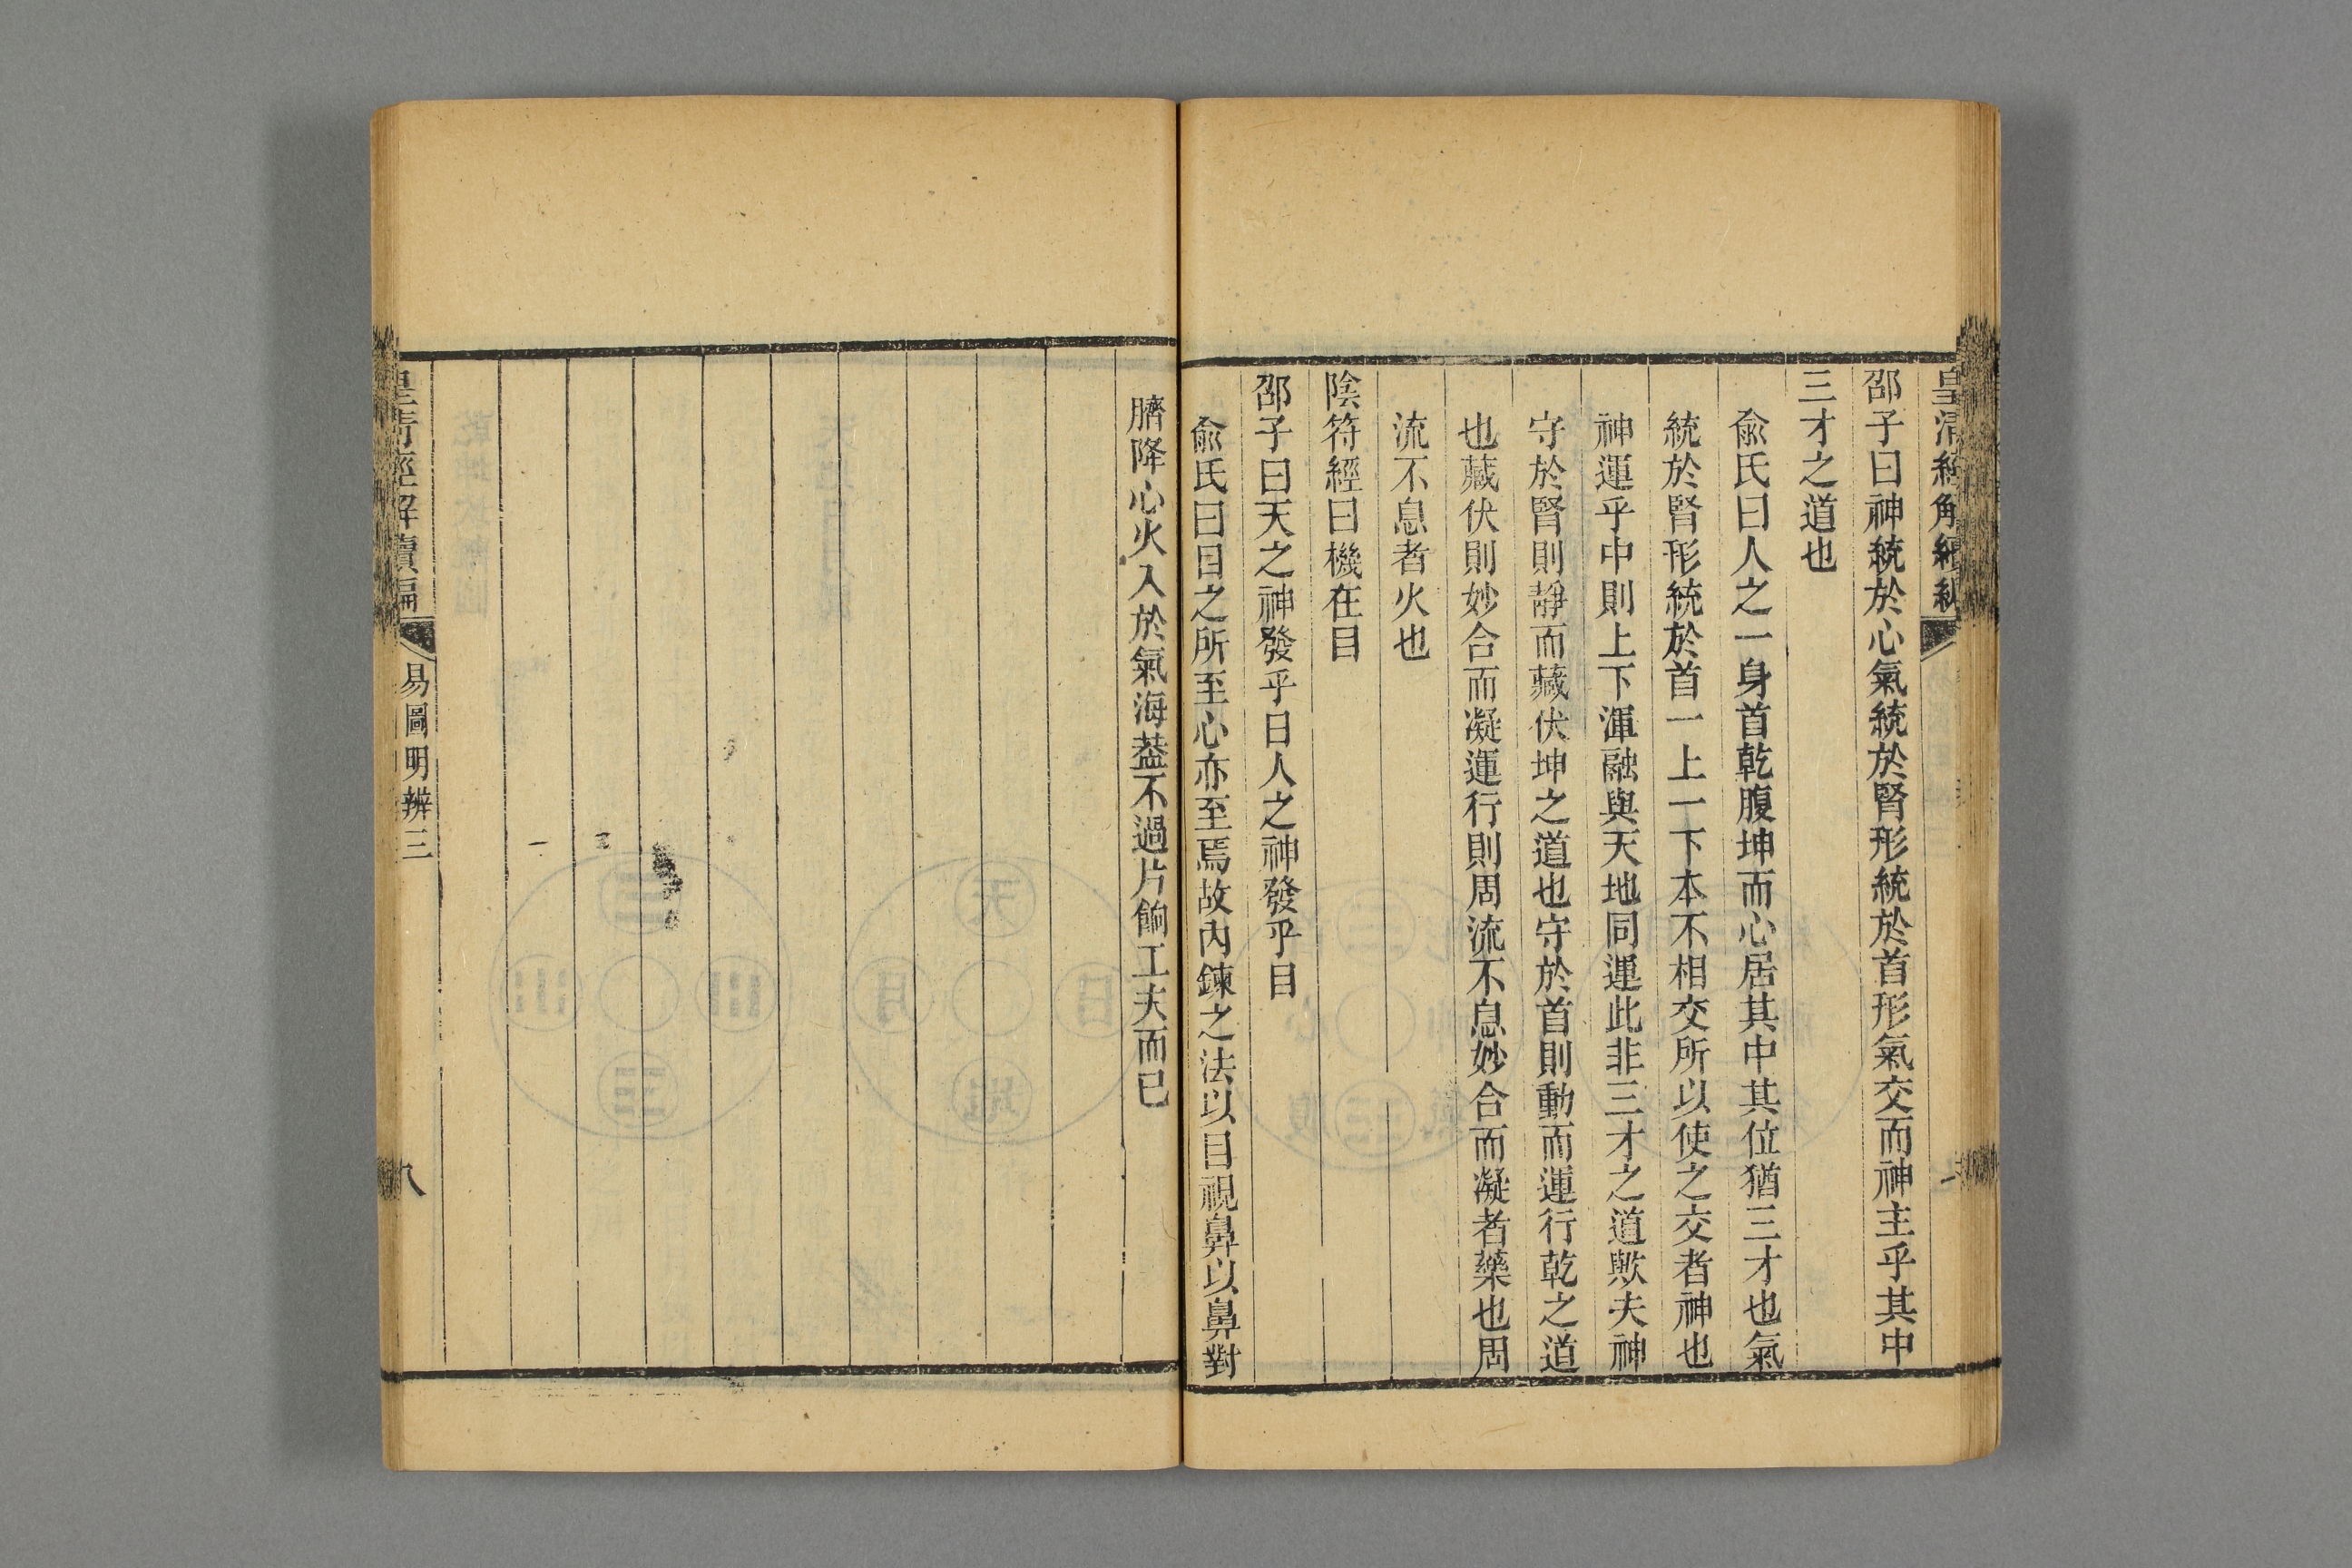 皇清經解續編
邵子曰神統於心氣統於腎形統於首形氣交而神主乎其中
三才之道也
俞氏曰人之一身首乾腹坤而心居其中其位猶三才也氣
統於腎形統於首一上一下本不相交所以使之交者神也
神運乎中則上下渾融與天地同運此非三才之道歟夫神
守於腎則靜而藏伏坤之道也守於首則動而運行乾之道
也藏伏則妙合而凝運行則周流不息妙合而凝者藥也周
流不息者火也
陰符經曰機在目
邵子曰天之神發乎日人之神發乎目
俞氏曰目之所至心亦至焉故內鍊之法以目視鼻以鼻對
臍降心火入於氣海葢不過片餉工夫而已
皇清經解續編
易圖明辨三
八